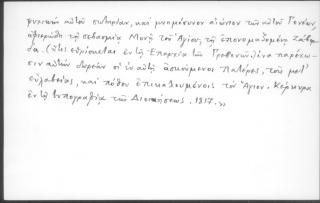 ψυχικὴν αὐτοῦ σωτηρίαν, καὶ μνημόσυνον αἰώνιον τῶν αὐτοῦ Γονέων,
ἀφιερώθη τῇ σεβασμίᾳ Μονῇ τοῦ Ἁγίου, τῇ ἐπονομαζομένῃ Ζάβορ-
δα. (ἥτις εὑρίσκεται ἐν τῇ Ἐπαρχίᾳ τῶν Γρεβενῶν) ἵνα παρέχω-
σιν αὐτὴν δωρεὰν οἱ ἐν αὐτῇ ἀσκούμενοι Πατέρες, τοῖς μετ'
εὐλαβείας, καὶ πόθου ἐπικαλουμένοις τὸν Ἅγιον. Κέρκυρα
ἐν τῇ τυπογραφίᾳ τῆς Διοικήσεως. 1817.»